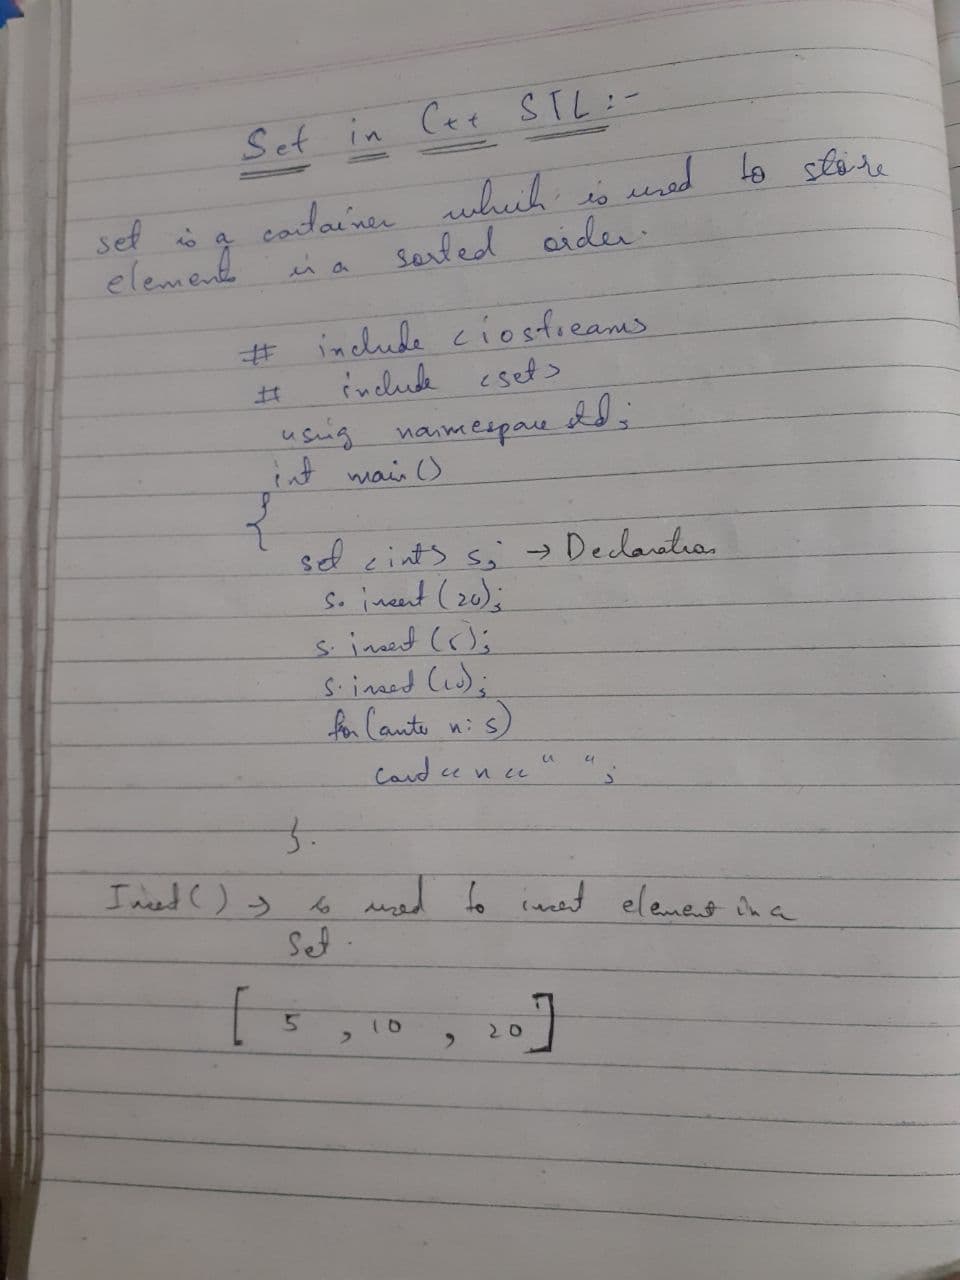 Set in C++ STL :-
set is a container which is used to store
element in a sorted order.
# include <iostream>
# include <set>
using namespace std;
int main()
{
set <int> s; → Declaration
s. insert (20);
s. insert (5);
s. insert (10);
for (auto n: s)
cout << n << " ";
}.
Insert() → is used to insert element in a
Set.
[ 5 , 10 , 20 ]